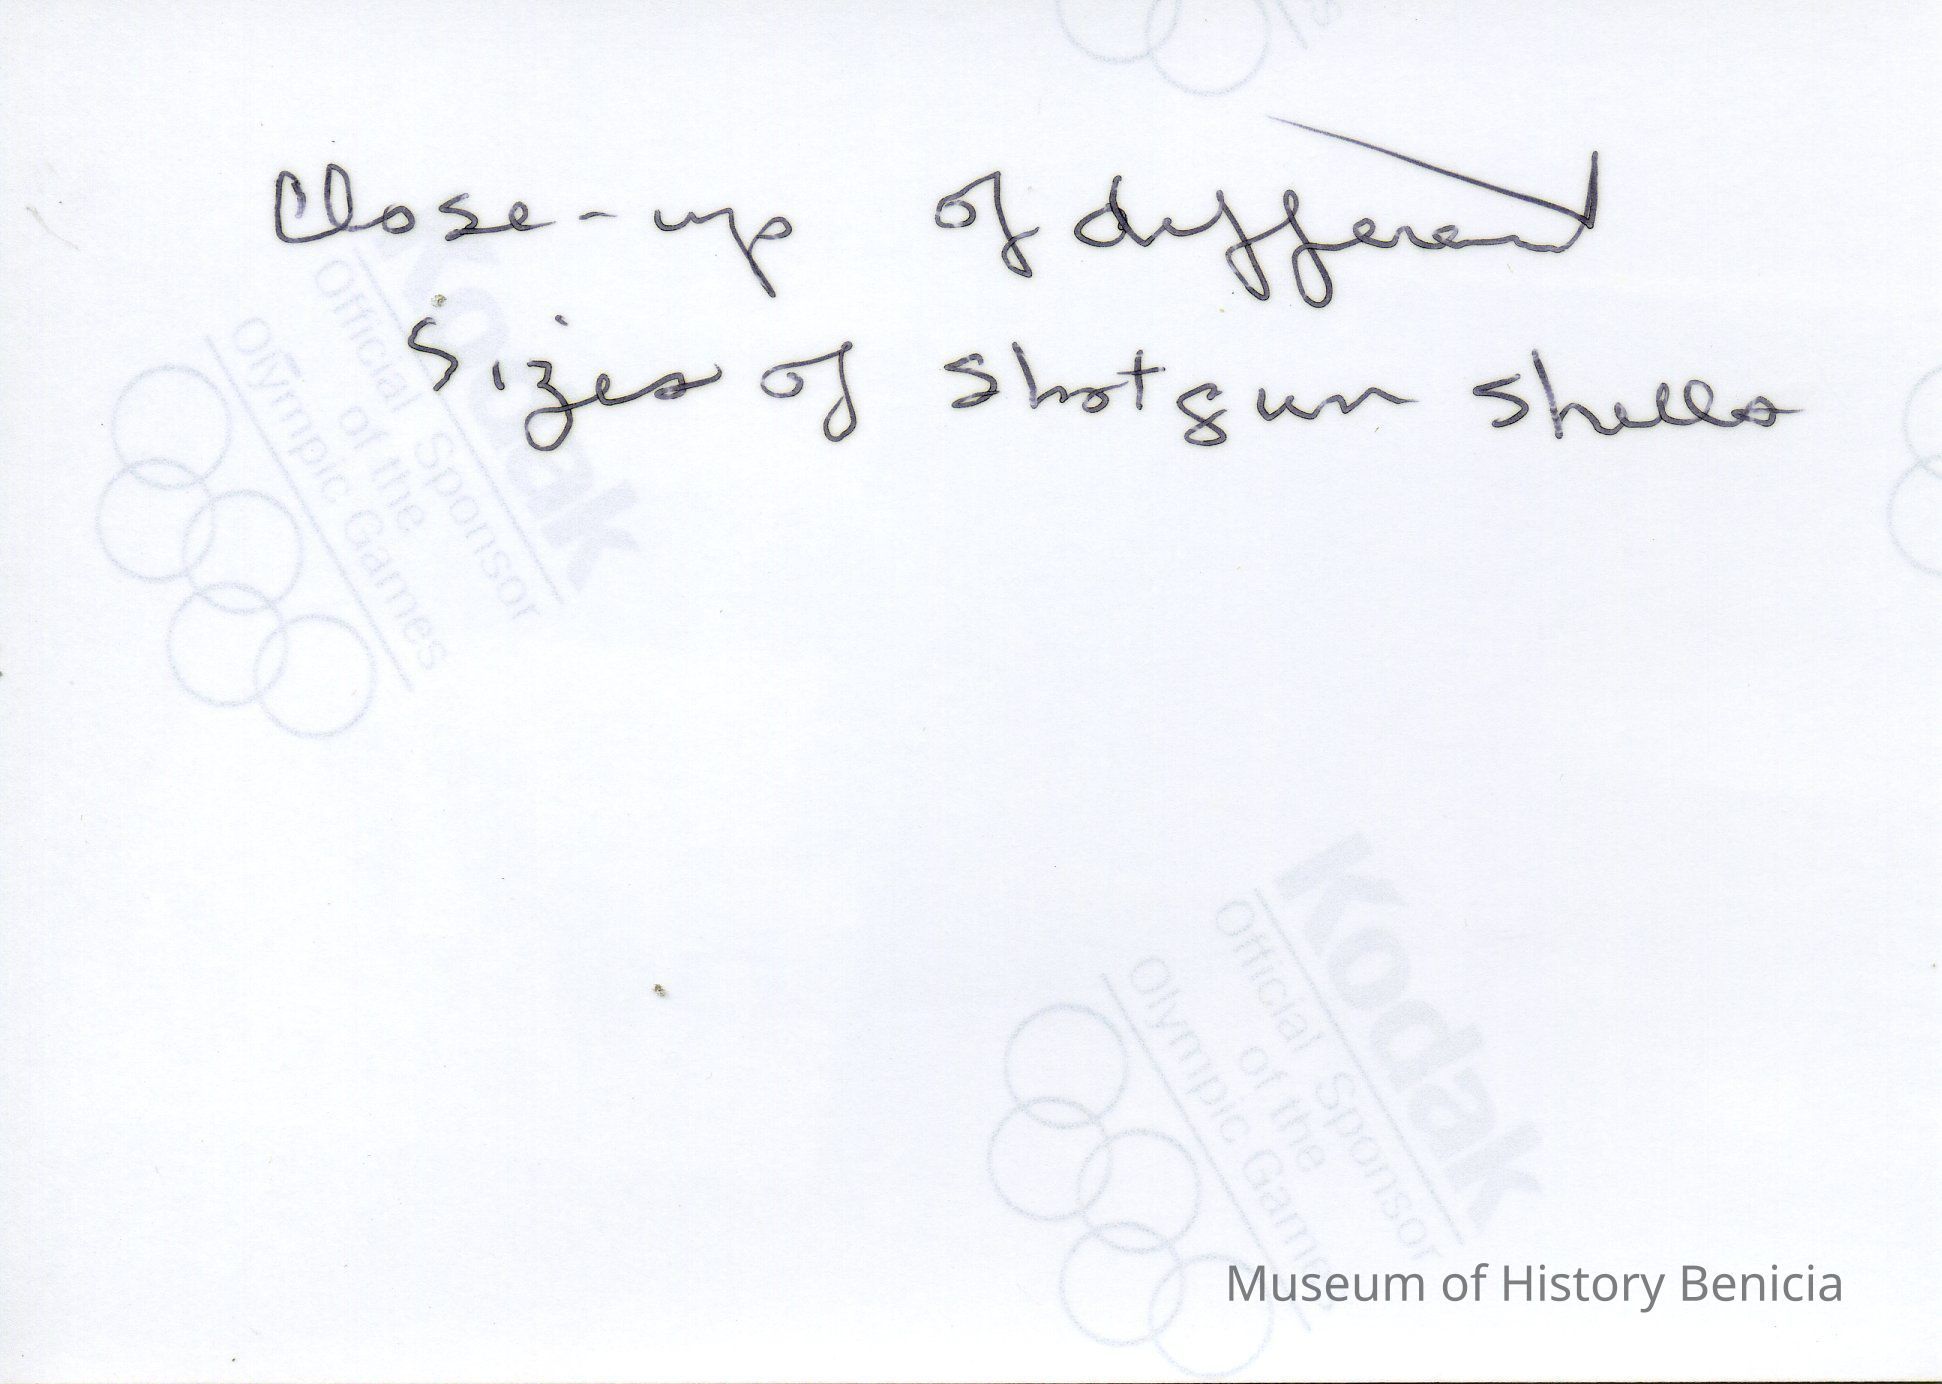 Close-up of different
Sizes of Shotgun Shells
Kodak
Official Sponsor
of the
Olympic Games
Kodak
Official Sponsor
of the
Olympic Games
Museum of History Benicia